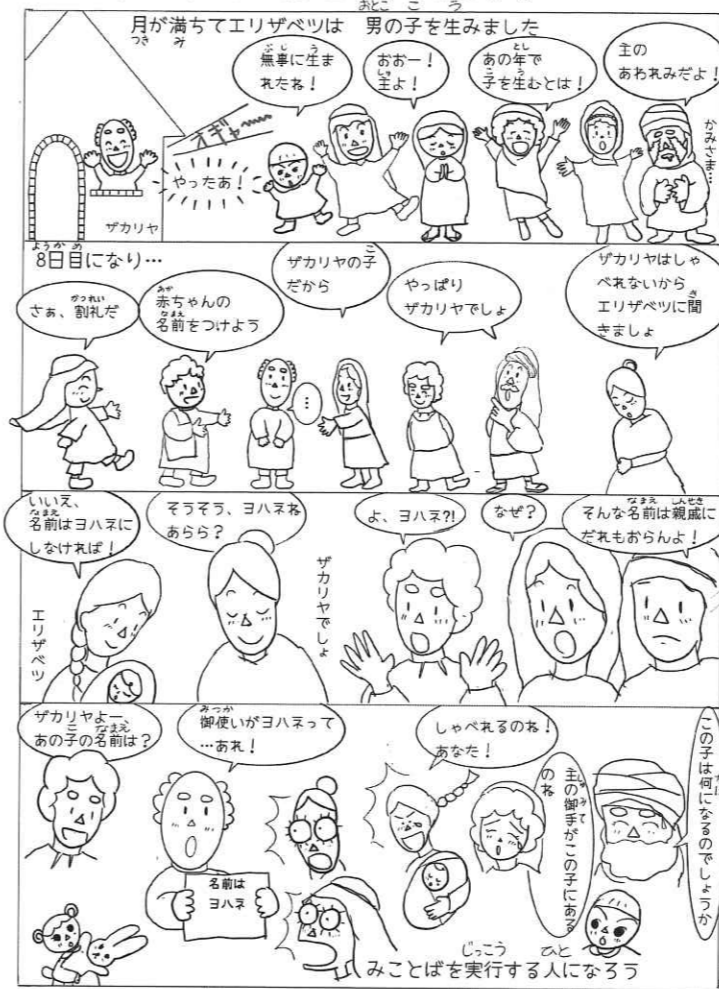 月が満ちてエリザベツは　男の子を生みました
無事に生ま
れたね！
おおー！
主よ！
あの年で
子を生むとは！
主の
あわれみだよ！
かみさま…
オギャー
やったあ！
ザカリヤ
8日目になり…
さぁ、割礼だ
赤ちゃんの
名前をつけよう
ザカリヤの子
だから
…
やっぱり
ザカリヤでしょ
ザカリヤはしゃ
べれないから
エリザベツに聞
きましょ
いいえ、
名前はヨハネに
しなければ！
エリザベツ
そうそう、ヨハネね
あらら？
ザカリヤでしょ
よ、ヨハネ?!
なぜ？
そんな名前は親戚に
だれもおらんよ！
ザカリヤよー、
あの子の名前は？
御使いがヨハネって
…あれ！
名前は
ヨハネ
しゃべれるのね！
あなた！
主の御手がこの子にある
のね
この子は何になるのでしょうか
みことばを実行する人になろう